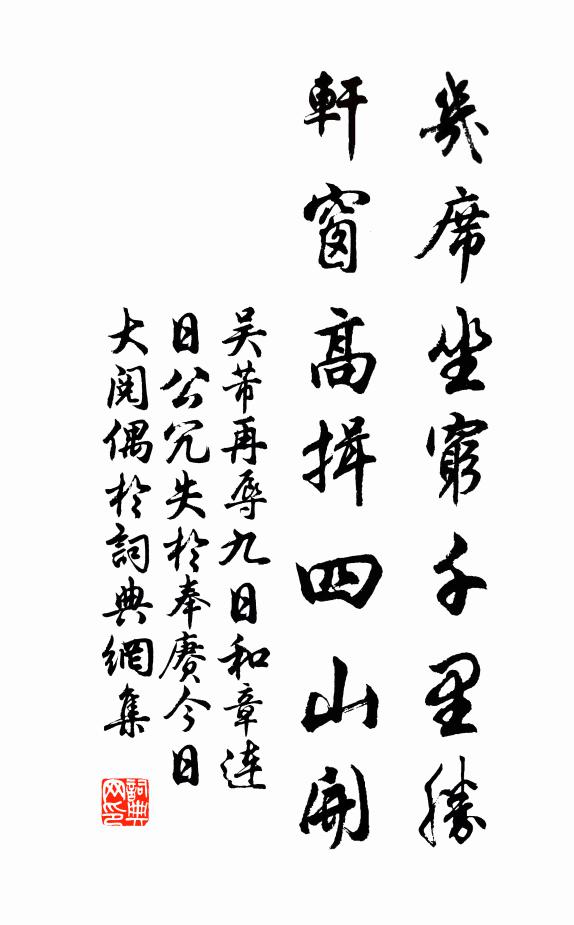 幾席坐窮千里勝
軒窗高揖四山開
吴芾再辱九日和章連
日公冗失於奉賡今日
大閱偶於詞典網集
詞典網印